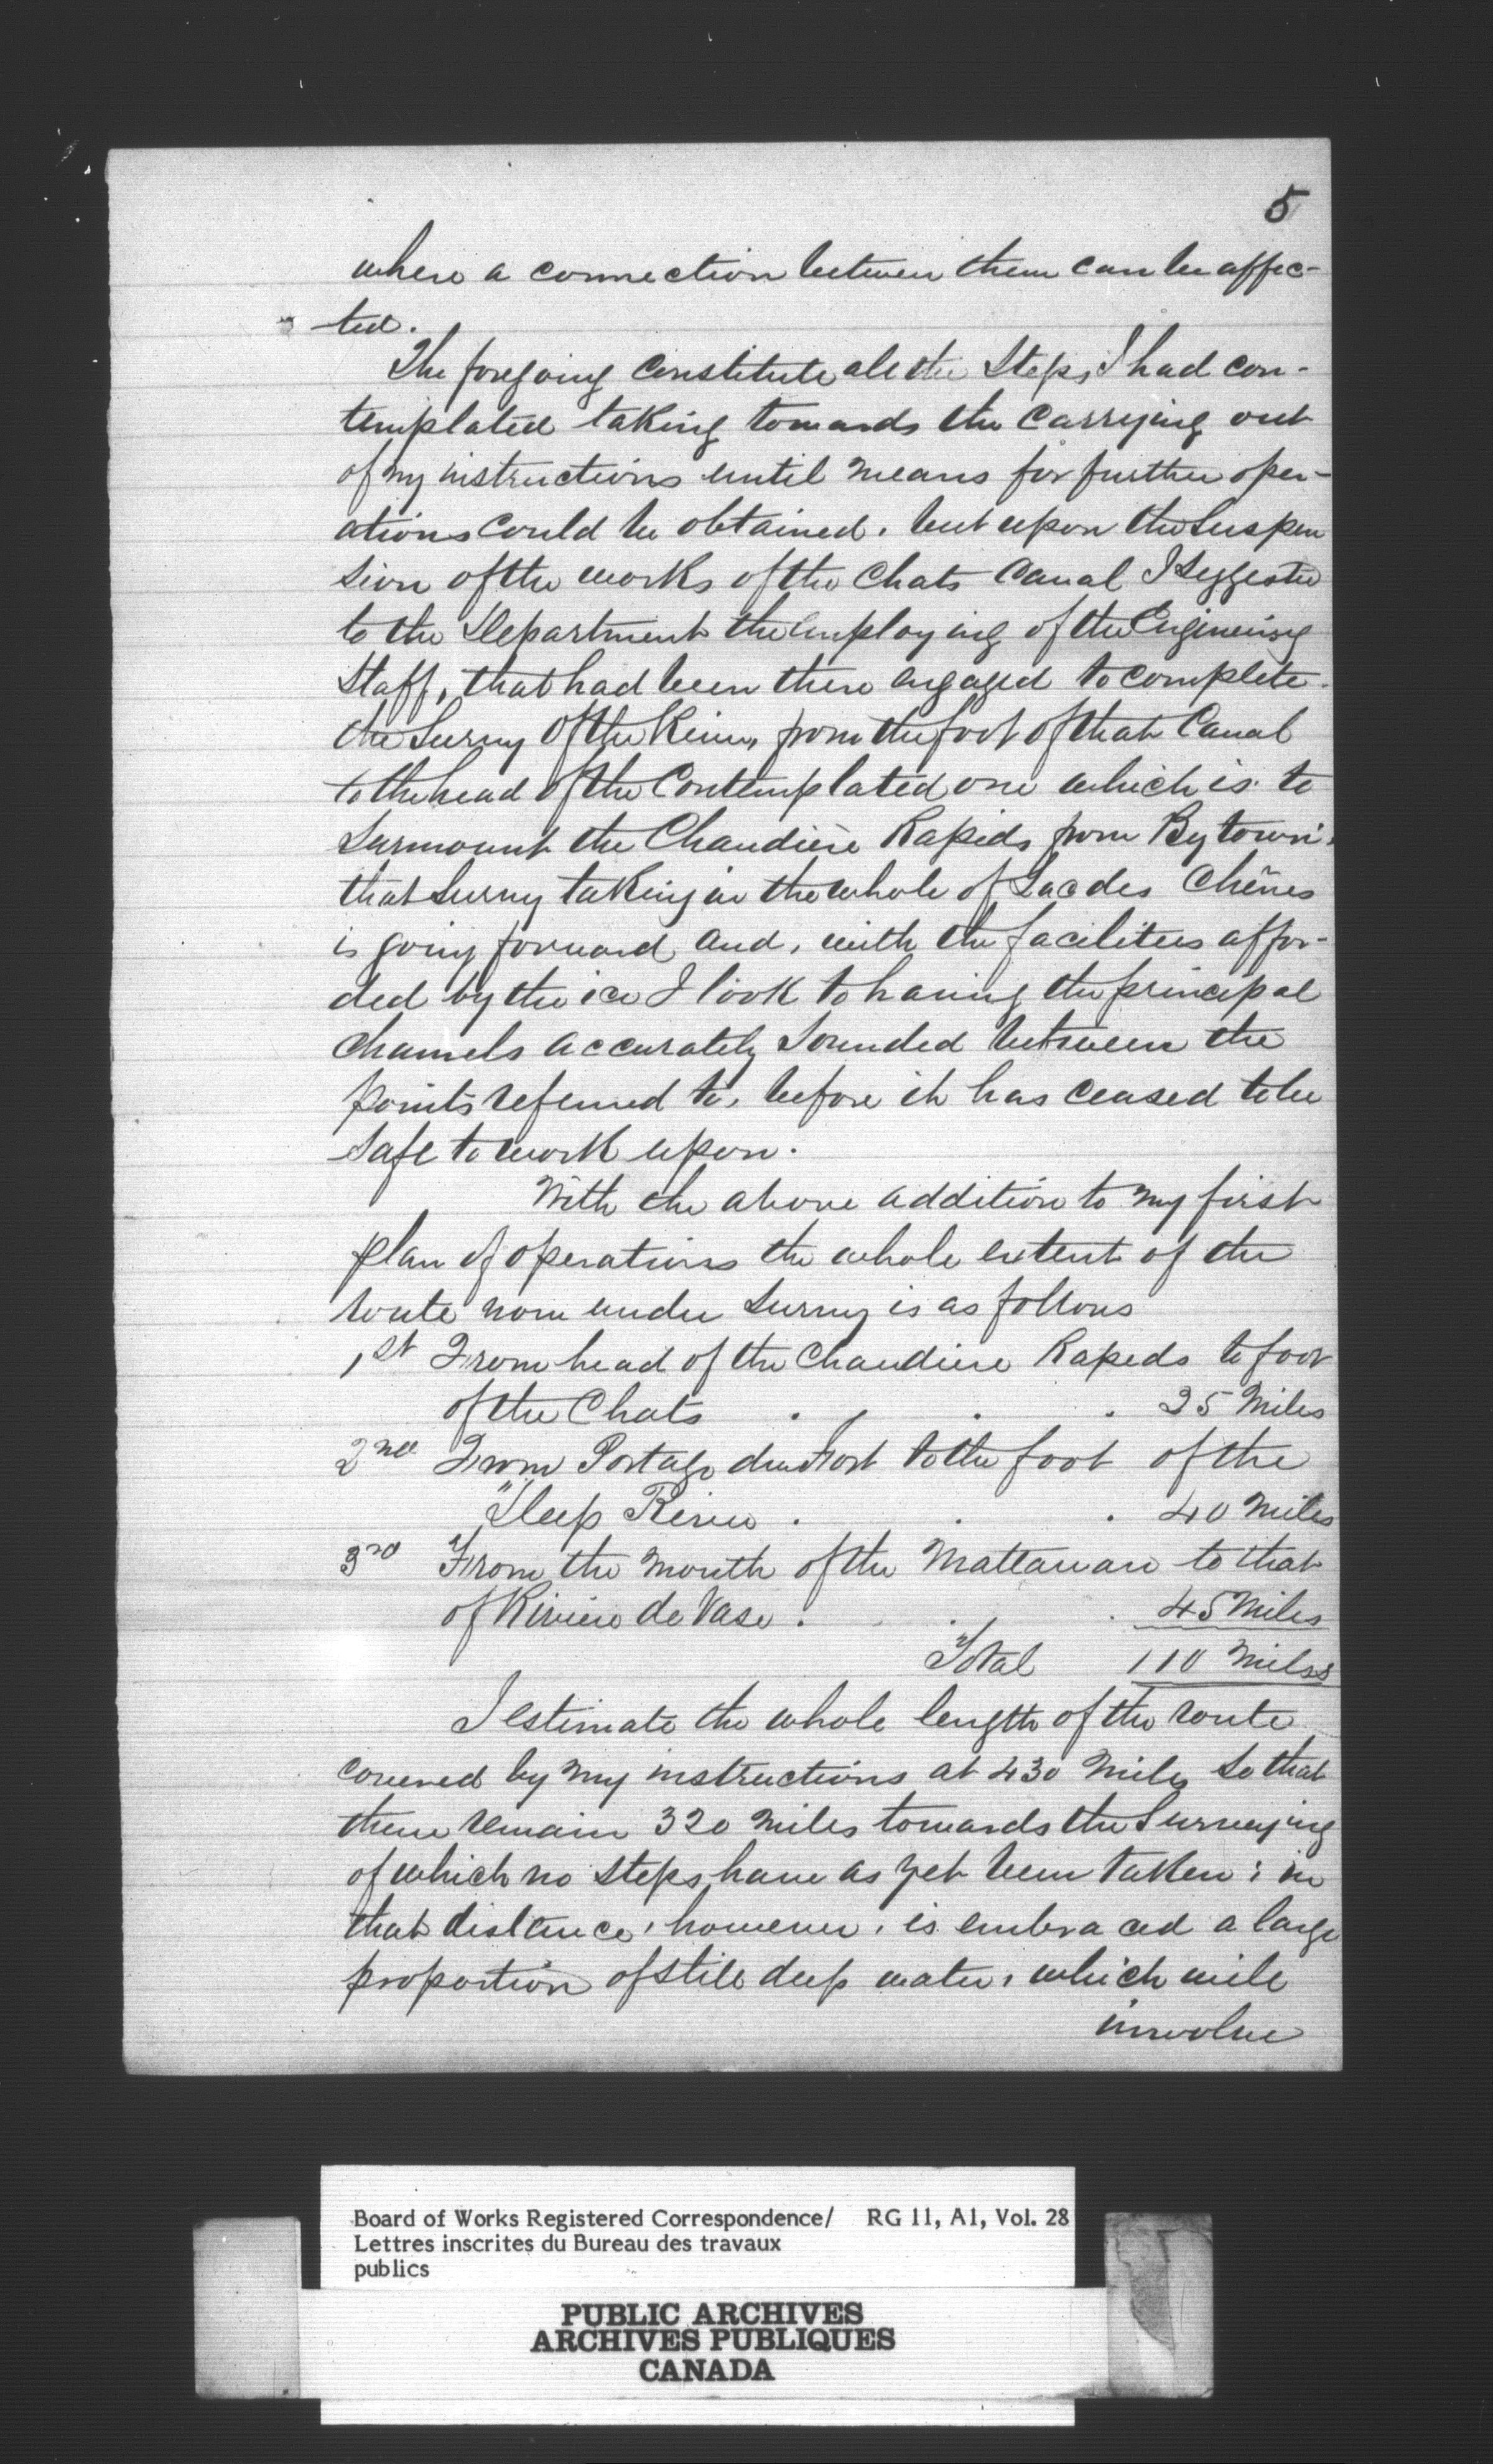 5
where a connection between them can be affec-
ted.
The foregoing constitute all the Steps, I had con-
templated taking towards the carrying out
of my instructions until means for further oper-
ations could be obtained, but upon the Suspen
sion of the works of the Chats Canal I Suggested
to the Department the employing of the Engineering
Staff, that had been there engaged to complete
the Survey of the River, from the foot of that Canal
to the head of the Contemplated one which is to
Surmount the Chaudière Rapids from Bytown,
that Survey taking in the whole of Lac des Chênes
is going forward and, with the facilities affor-
ded by the ice I look to having the principal
channels accurately Sounded between the
points referred to, before it has ceased to be
Safe to work upon.
With the above addition to my first
plan of operations the whole extent of the
route now under Survey is as follows
1st From head of the Chaudiere Rapids to foot
of the Chats . . . . 25 Miles
2nd From Portage du Fort to the foot of the
"Deep River . . . 40 Miles
3rd From the Mouth of the Mattawan to that
of Riviere de Vase . . . 45 Miles
Total 110 Miles
I estimate the whole length of the route
covered by my instructions at 430 Miles So that
there remain 320 Miles towards the Surveying
of which no Steps have as yet been taken; in
that distance, however, is embraced a large
proportion of still deep water, which will
involve
Board of Works Registered Correspondence/ RG 11, A1, Vol. 28
Lettres inscrites du Bureau des travaux
publics
PUBLIC ARCHIVES
ARCHIVES PUBLIQUES
CANADA